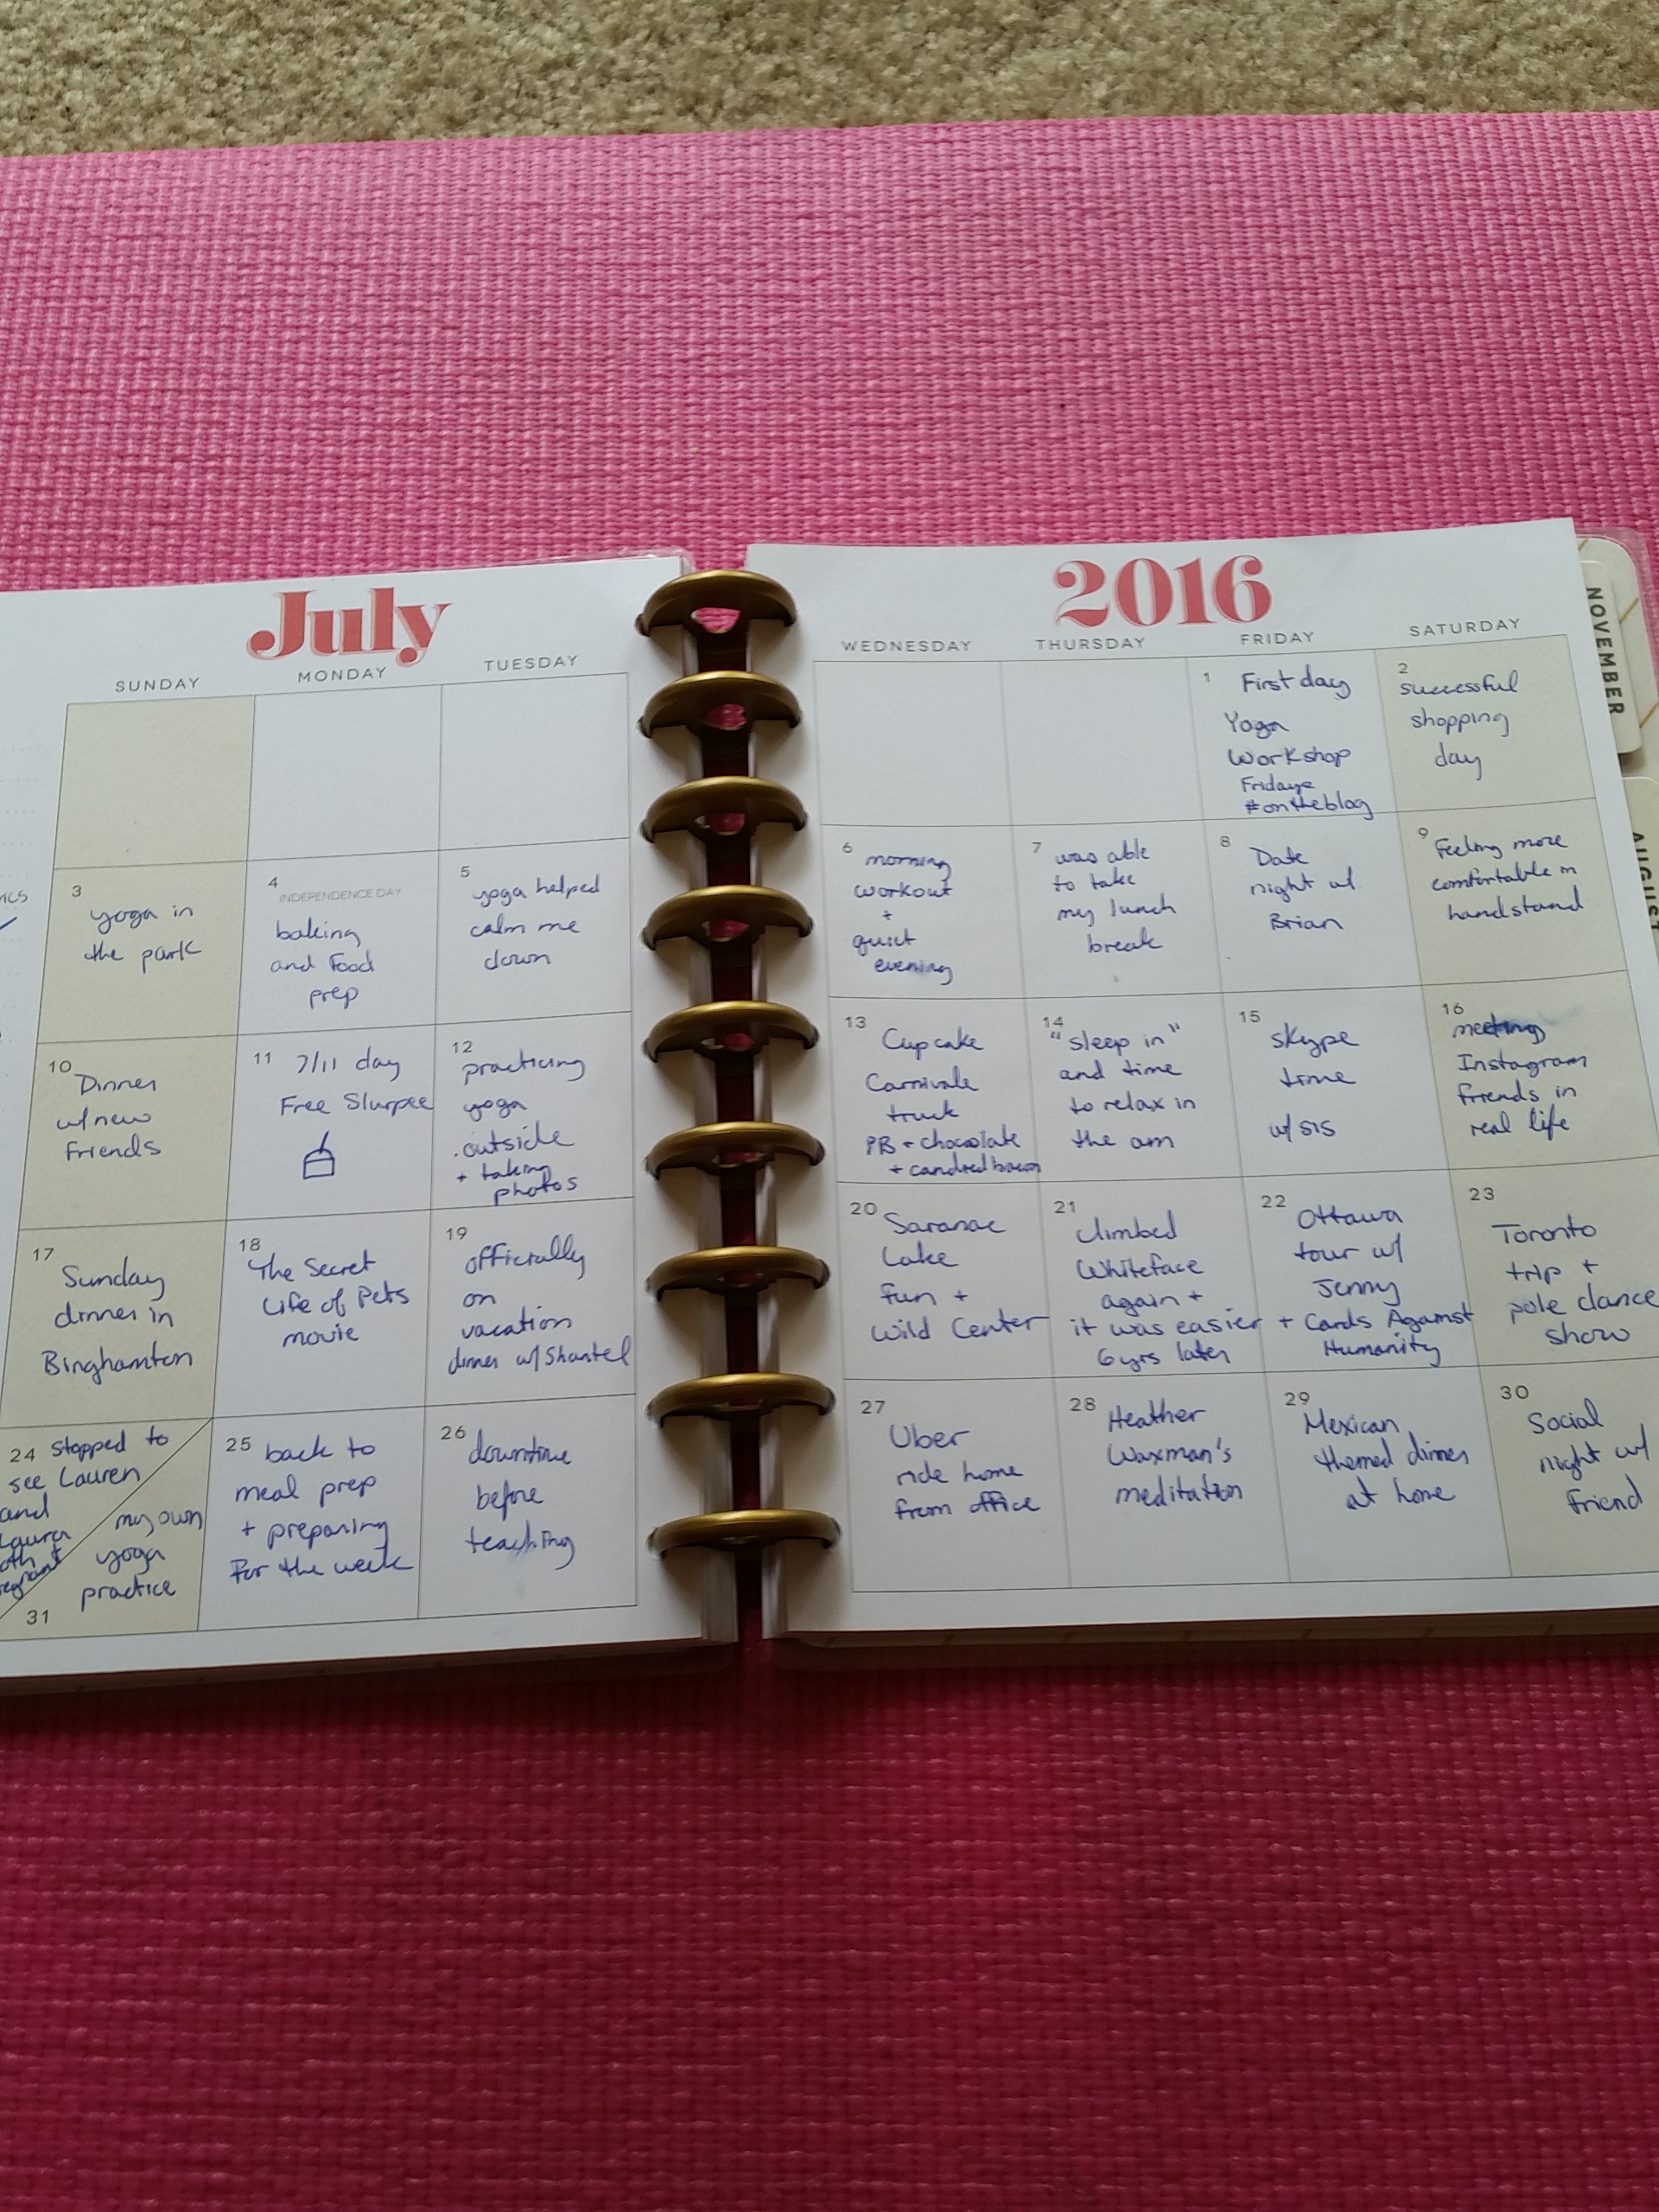 July
2016
SUNDAY
MONDAY
TUESDAY
WEDNESDAY
THURSDAY
FRIDAY
SATURDAY
1
First day
Yoga
Workshop
Fridays
#ontheblog
2
successful
shopping
day
3
yoga in
the park
4
INDEPENDENCE DAY
baking
and food
prep
5
yoga helped
calm me
down
6
morning
workout
+
quiet
evening
7
was able
to take
my lunch
break
8
Date
night w/
Brian
9
Feeling more
comfortable in
handstand
10
Dinner
w/ new
friends
11
7/11 day
Free Slurpee
12
practicing
yoga
outside
+ taking
photos
13
Cupcake
Carnivale
truck
PB + chocolate
+ candied bacon
14
"sleep in"
and time
to relax in
the am
15
skype
time
w/ sis
16
meeting
Instagram
friends in
real life
17
Sunday
dinner in
Binghamton
18
The Secret
Life of Pets
movie
19
officially
on
vacation
dinner w/ Shantel
20
Saranac
Lake
fun +
Wild Center
21
climbed
Whiteface
again +
it was easier
6 yrs later
22
Ottawa
tour w/
Jenny
+ Cards Against
Humanity
23
Toronto
trip +
pole dance
show
24 Stopped to
see Lauren
and
Laura
my own
yoga
practice
31
25
back to
meal prep
+ preparing
for the week
26
downtime
before
teaching
27
Uber
ride home
from office
28
Heather
Waxman's
meditation
29
Mexican
themed dinner
at home
30
Social
night w/
friend
NOVEMBER
AUGUST